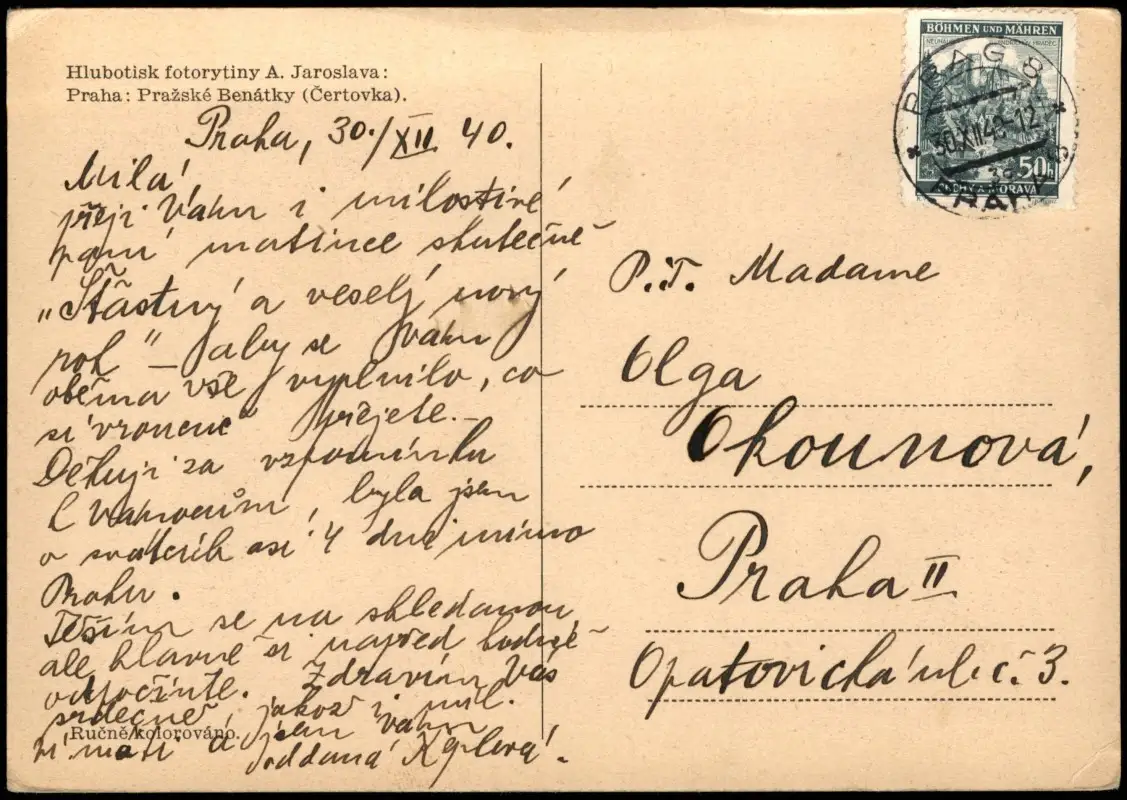 Hlubotisk fotorytiny A. Jaroslava:
Praha: Pražské Benátky (Čertovka).
Praha, 30./XII 40.
Milá!
přeji Vám i milostivé
paní matince skutečně
„Šťastný a veselý nový
rok" – aby se Vám
oběma vše vyplnilo, co
si vroucně přejete.–
Děkuji za vzpomínku
k Vánocům, byla jsem
o svátcích asi 4 dni mimo
Prahu.
Těším se na shledanou,
ale hlavně si napřed hodně
odpočiňte. Zdravím Vás
srdečně jakož i mil.
mati a jsem Vám
oddaná
Ručně kolorováno.
BÖHMEN UND MÄHREN
NEUHAUS JINDŘICHŮV HRADEC
50h
ČECHY A MORAVA
PRAG 8
30.XII.40-12
PRAHA 8
P.T. Madame
Olga
Okounová,
Praha II
Opatovická ul. č. 3.